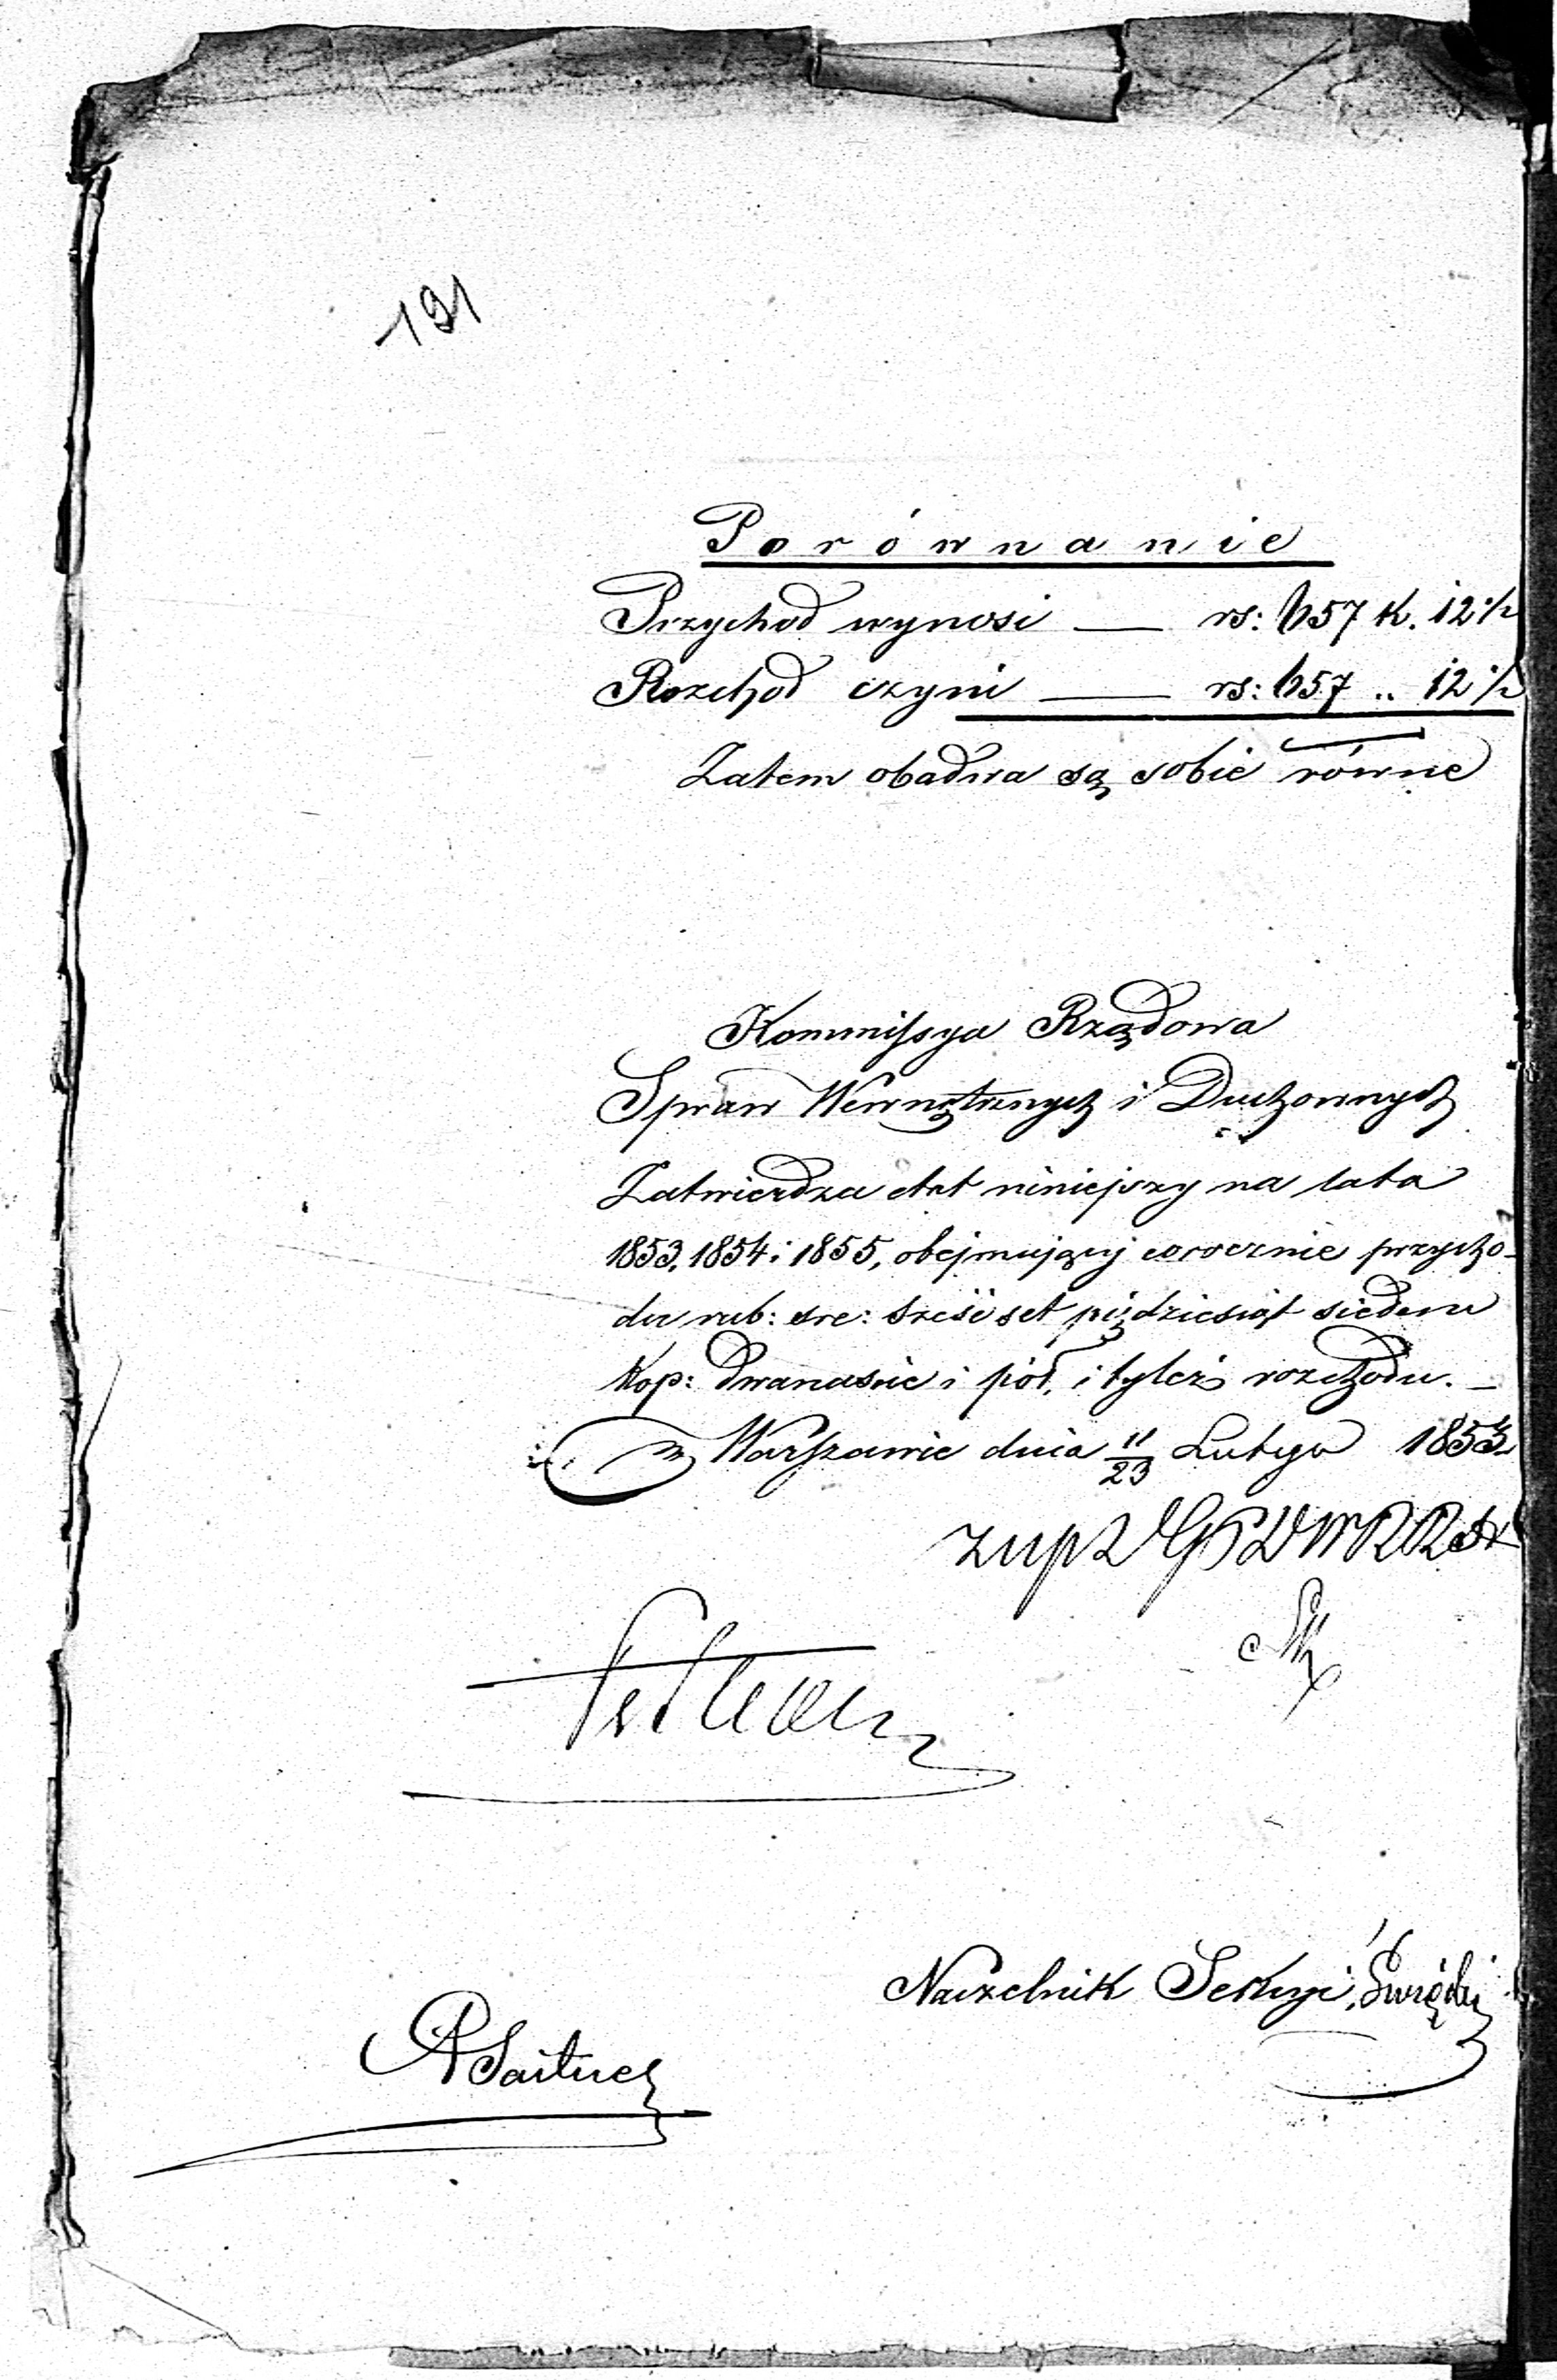 191
Porównanie
Przychod wynosi — rs: 657 k. 12½
Rozchod czyni — rs: 657 .. 12½
Zatem obadwa są sobie równe
Kommissya Rządowa
Spraw Wewnętrznych i Duchownych
Zatwierdza etat niniejszy na lata
1853, 1854 i 1855, obejmujący corocznie przycho-
du rub: sre: sześćset piędziesiąt siedem
kop: dwanaście i pół, i tyleż rozchodu. —
w Warszawie dnia 11/23 Lutego 1853
Naczelnik Sekcyi